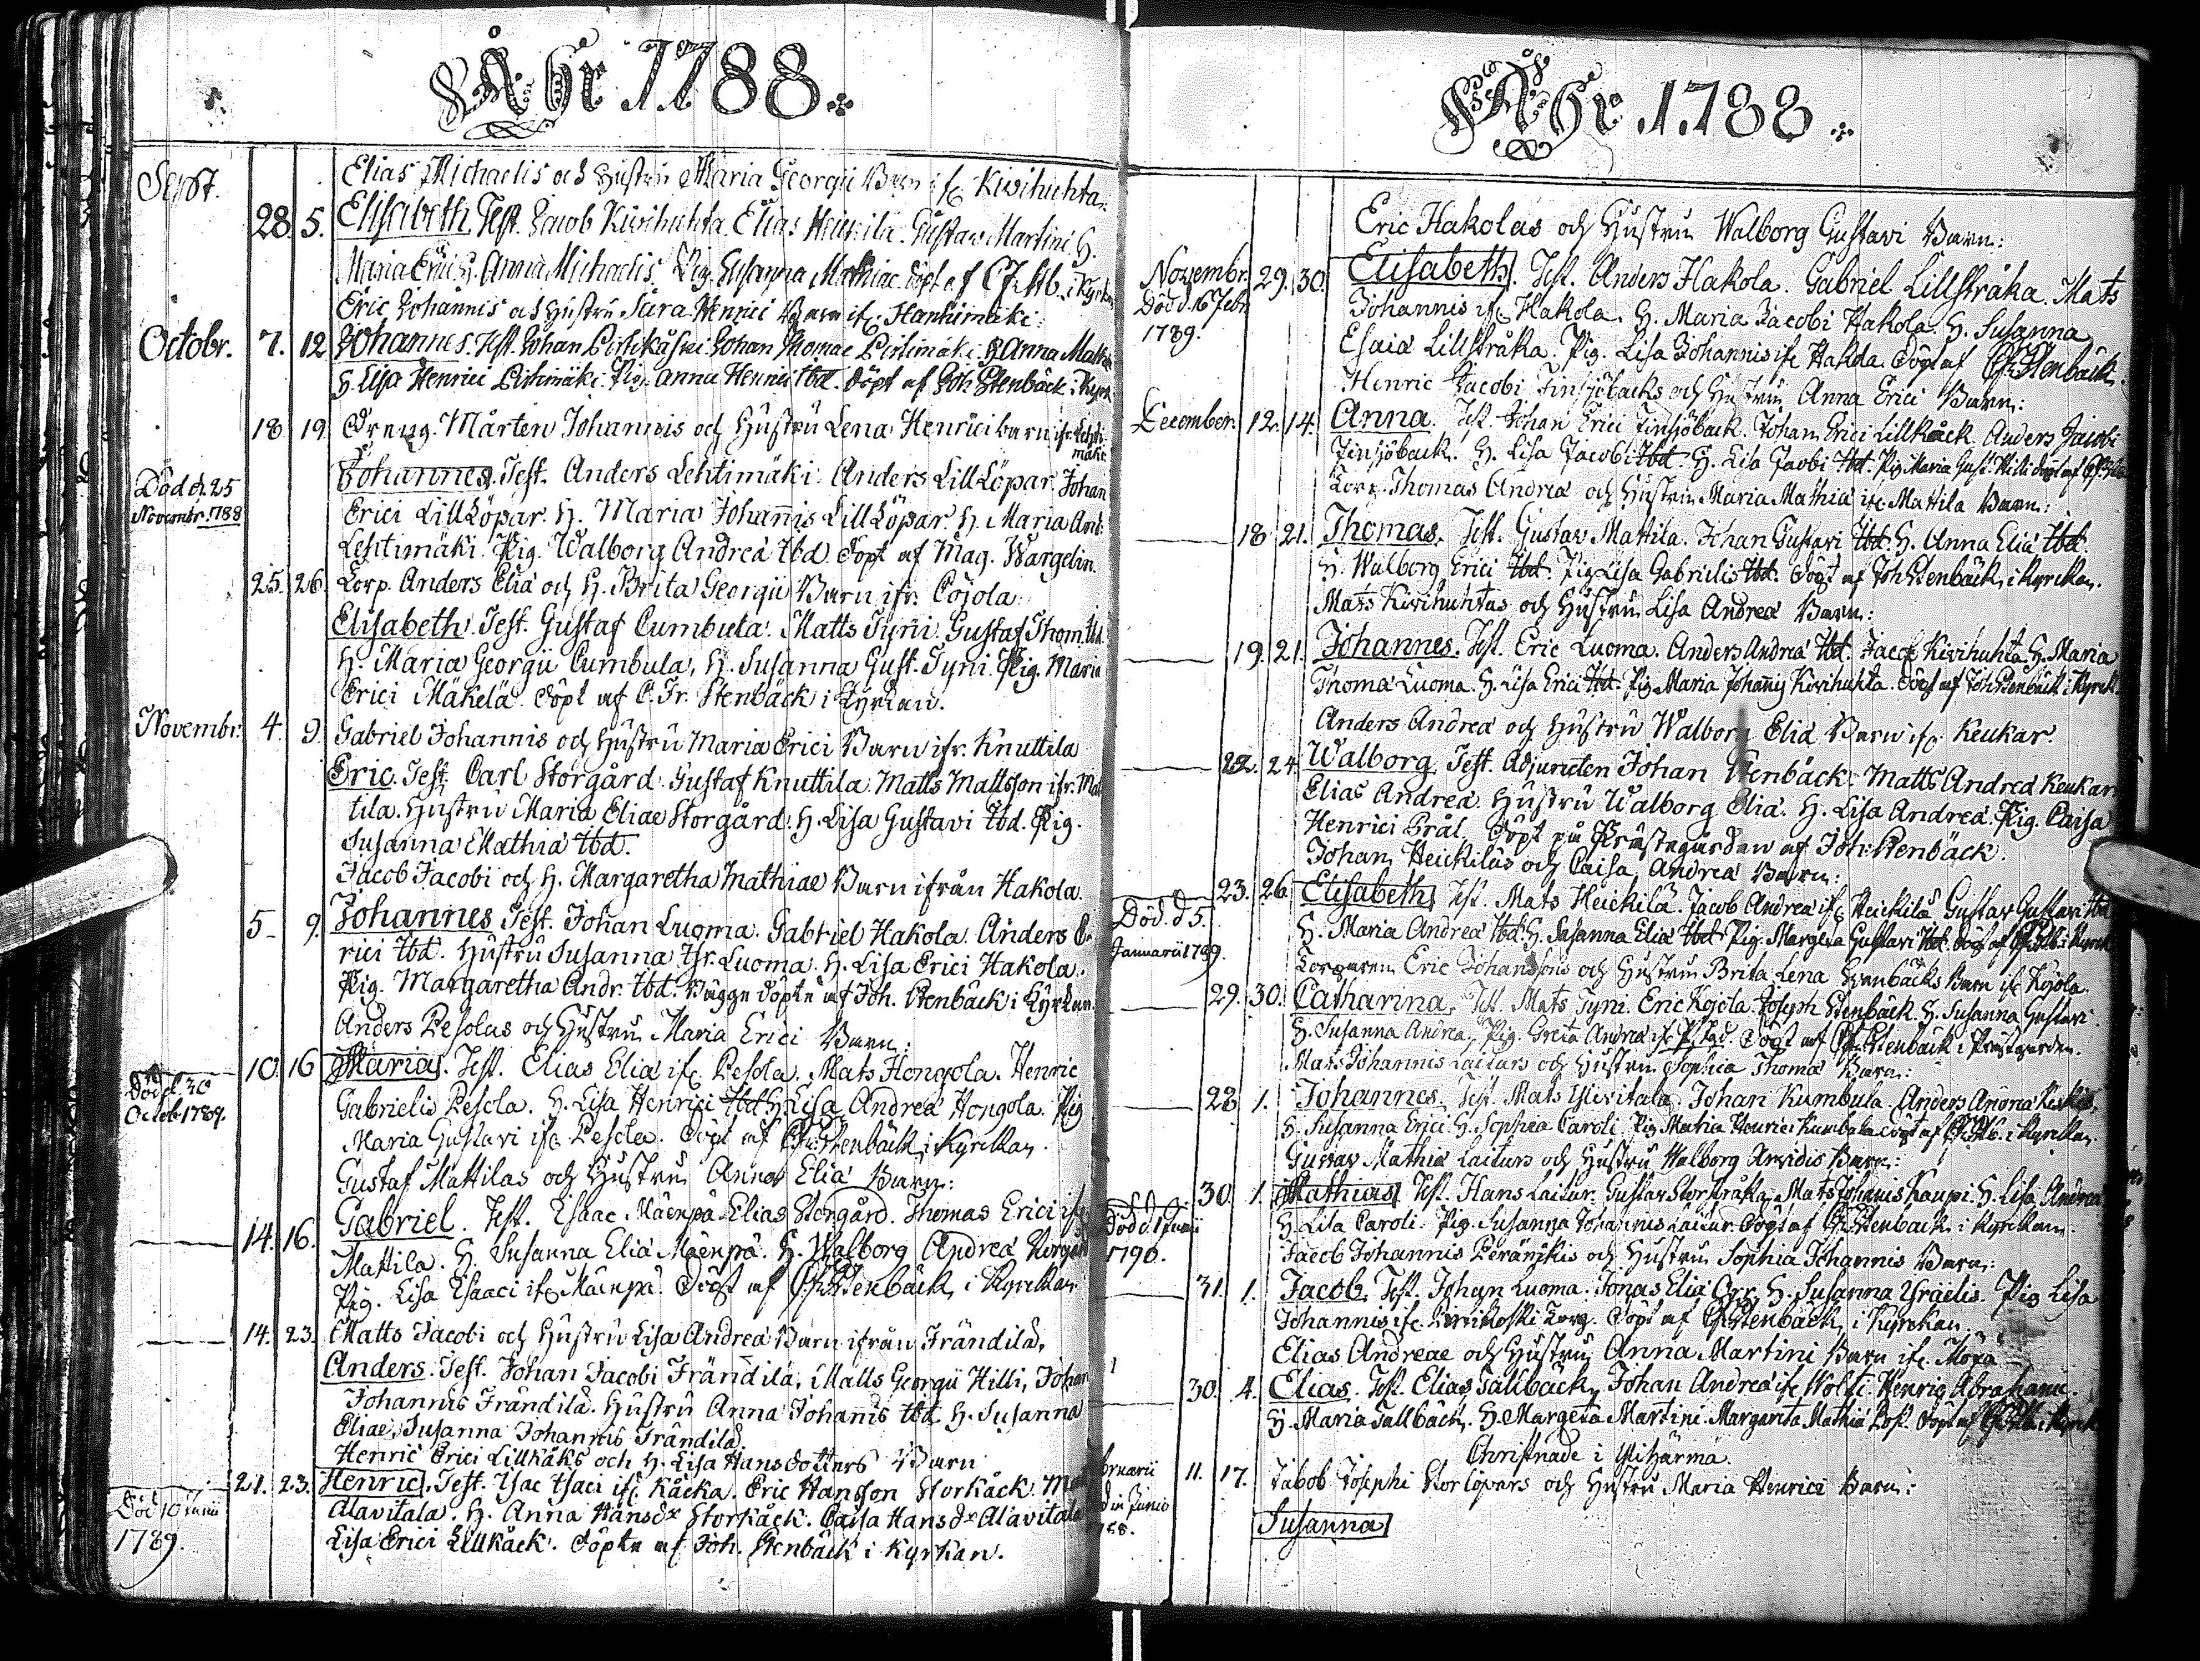 År 1788.
Sept.
Elias Michaelis och Hustru Maria Georgii Barn ifr. Kivihuhta.
28. 5. Elisabeth. Test. Jacob Kivihuhta. Elias Heikilä. Gustav Martini. H.
Maria Erici. H. Anna Michaelis. Pig. Susanna Mathiae. döpt af
Eric Johannis och Hustru Sara Henrici Barn ifr. Hanhimäki.
Octobr. 7. 12 Johannes. Test. Johan Johan Thomae H. Anna
H. Lisa Henrici Pig. Anna Henrici Ibd. döpt af Joh Stenbäck i Kyrk
18 19 Dreng. Mårten Johannis och Hustru Lena Henrici barn ifr. Lehti-
mäki
Johannes. Test. Anders Lehtimäki. Anders Lill Löpar. Johan
Död d. 25
Novembr. 1788
Erici Lill Löpar. H. Maria Johannis Lill Löpar. H. Maria And.
Lehtimäki. Pig. Walborg Andreä Ibd. döpt af Mag. Wargelin.
25. 26. Corp. Anders Eliä och H. Brita Georgii Barn ifr. Cojola
Elisabeth. Test. Gustaf Cumbula. Matts Tyni. Gustaf Thom. Ibd.
H. Maria Georgii Cumbula, H. Susanna Gust. Tyni. Pig. Maria
Erici Mäkelä. döpt af C. Fr. Stenbäck i Kyrkan.
Novembr. 4. 9. Gabriel Johannis och Hustru Maria Erici Barn ifr. Knuttila
Eric. Test. Carl Storgård. Gustaf Knuttila. Matts Mattsson ifr. Mat
tila. Hustru Maria Eliae Storgård. H. Lisa Gustavi Ibd. Pig.
Susanna Mathiä Ibd.
Jacob Jacobi och H. Margaretha Mathiae Barn ifrån Hakola.
5. 9. Johannes. Test. Johan Luoma. Gabriel Hakola. Anders E-
rici Ibd. Hustru Susanna Luoma. H. Lisa Erici Hakola.
Pig. Margaretha Andr. Ibd. Bägge döpte af Joh. Stenbäck i Kyrkan.
Anders Pesolas och Hustru Maria Erici Barn:
10. 16 Maria. Test. Elias Eliä ifr. Pesola. Mats Hongola. Henric
Död d. 30
Octob. 1789.
Gabrielis Pesola. H. Lisa Henrici Ibd. H. Lisa Andreä Hongola. Pig
Maria Gustavi ifr. Pesola. Döpt af Stenbäck i Kyrckan.
Gustaf Mattilas och Hustru Anna Eliä Barn:
14. 16. Gabriel. Test. Esaac Mäenpä. Elias Storgård. Thomas Erici ifr
Mattila. H. Susanna Eliä Mäenpä. H. Walborg Andreä
Pig. Lisa Esaaci ifr. Mäenpä. Döpt af Stenbäck i Kyrckan
14. 23. Matts Jacobi och Hustru Lisa Andreä Barn ifrån Frändilä.
Anders. Test. Johan Jacobi Frändilä, Matts Georgii Hilli, Johan
Johannis Frändilä. Hustru Anna Johannis Ibd. H. Susanna
Eliae, Susanna Johannis Frändilä.
Henric Erici Lillkåks och H. Lisa Hans dotters Barn
21. 23. Henric. Test. Isac Isaci ifr. Kåcka. Eric Hansson Storkåck.
Död 10 Junii
1789.
Alavitala. H. Anna Hansdr Storkåck. Caisa Hansdr Alavitala
Lisa Erici Lillkåck. döpte af Joh. Stenbäck i Kyrkan.
År 1788.
Eric Hakolas och Hustru Walborg Gustavi Barn:
Novembr. 29. 30. Elisabeth. Test. Anders Hakola. Gabriel Lillstråka. Mats
Död d. 16 Febr.
1789.
Johannis ifr. Hakola. H. Maria Jacobi Hakola. H. Susanna
Esaiä Lillstråka. Pig. Lisa Johannis ifr Hakola. Döpt af Stenbäck.
Henric Jacobi Finsjöbacks och Hustru Anna Erici Barn:
December. 12. 14. Anna. Test. Johan Erici Finsjöback. Johan Erici Lillkåck. Anders Jacobi
Finsjöback. H. Lisa Jacobi Ibd. H. Lisa Jacobi Ibd. Pig. Maria Gust. Hilli döpt af
Corp. Thomas Andreä och Hustru Maria Mathiä ifr Mattila Barn:
18 21. Thomas. Test. Gustav Mattila. Johan Gustavi Ibd. H. Anna Eliä Ibd.
H. Walborg Erici Ibd. Pig. Lisa Gabrielis Ibd. Döpt af Joh Stenbäck i Kyrckan.
Mats Kivihuhtas och Hustru Lisa Andreä Barn:
19. 21. Johannes. Test. Eric Luoma. Anders Andreä Ibd. Jacob Kivihuhta. H. Maria
Thomä Luoma. H. Lisa Erici Ibd. Pig. Maria Johannis Kivihuhta. Döpt af Joh Stenbäck i Kyrck.
Anders Andreä och Hustru Walborg Eliä Barn ifr. Keukar
22. 24 Walborg. Test. Adjuncten Johan Stenbäck. Matts Andreä Keukar
Elias Andreä. Hustru Walborg Eliä. H. Lisa Andreä. Pig. Caisa
Henrici Prål. Döpt på Prästegården af Joh: Stenbäck.
Johan Heickiläs och Caisa Andreä Barn:
23. 26. Elisabeth. Test. Mats Heickilä. Jacob Andreä ifr Heickilä. Gustav Gustavi Ibd
Död. d 5.
Januarii 1789.
H. Maria Andreä Ibd. H. Susanna Eliä Ibd. Pig. Margeta Gustavi Ibd. döpt af i Kyrck
Eric Johanssons och Hustru Brita Lena Svenbäcks Barn ifr Kojola
29. 30. Catharina. Test. Mats Tyni. Eric Kojola. Joseph Stenbäck. H. Susanna Gustavi
H. Susanna Andreä. Pig. Greta Andreä Döpt af Stenbäck i Prästgården.
Mats Johannis Laiturs och Hustru Sophia Thomä Barn:
28 1. Johannes. Test. Mats Ylivitala. Johan Kumbula. Anders Andreä
H. Susanna Erici. H. Sophia Caroli. Pig. Maria Henrici Kumbula döpt af i Kyrckan.
Gustav Mathiä Laiturs och Hustru Walborg Arvidis Barn:
30. 1. Mathias. Test. Hans Laitur. Gustav Storstråka. Mats Johannis Kaupi. H. Lisa Andreä
Död d. 1 Junii
1790.
H. Lisa Caroli. Pig. Susanna Johannis Laitur. Döpt af Stenbäck i Kyrckan.
Jacob Johannis och Hustru Sophia Johannis Barn:
31. 1. Jacob. Test. Johan Luoma. Jonas Eliä Orr. H. Susanna Israelis. Pig Lisa
Johannis ifr. Döpt af Stenbäck i Kyrckan.
Elias Andreae och Hustru Anna Martini Barn ifr.
30. 4. Elias. Test. Elias Tallbäck. Johan Andreä ifr Henric Abrahami.
H. Maria Tallbäck. H. Margeta Martini. Margareta Mathiä
Christnade i Ylihärmä.
11. 17. Jakob Josephi Storlöpars och Hustru Maria Henrici Barn:
Susanna